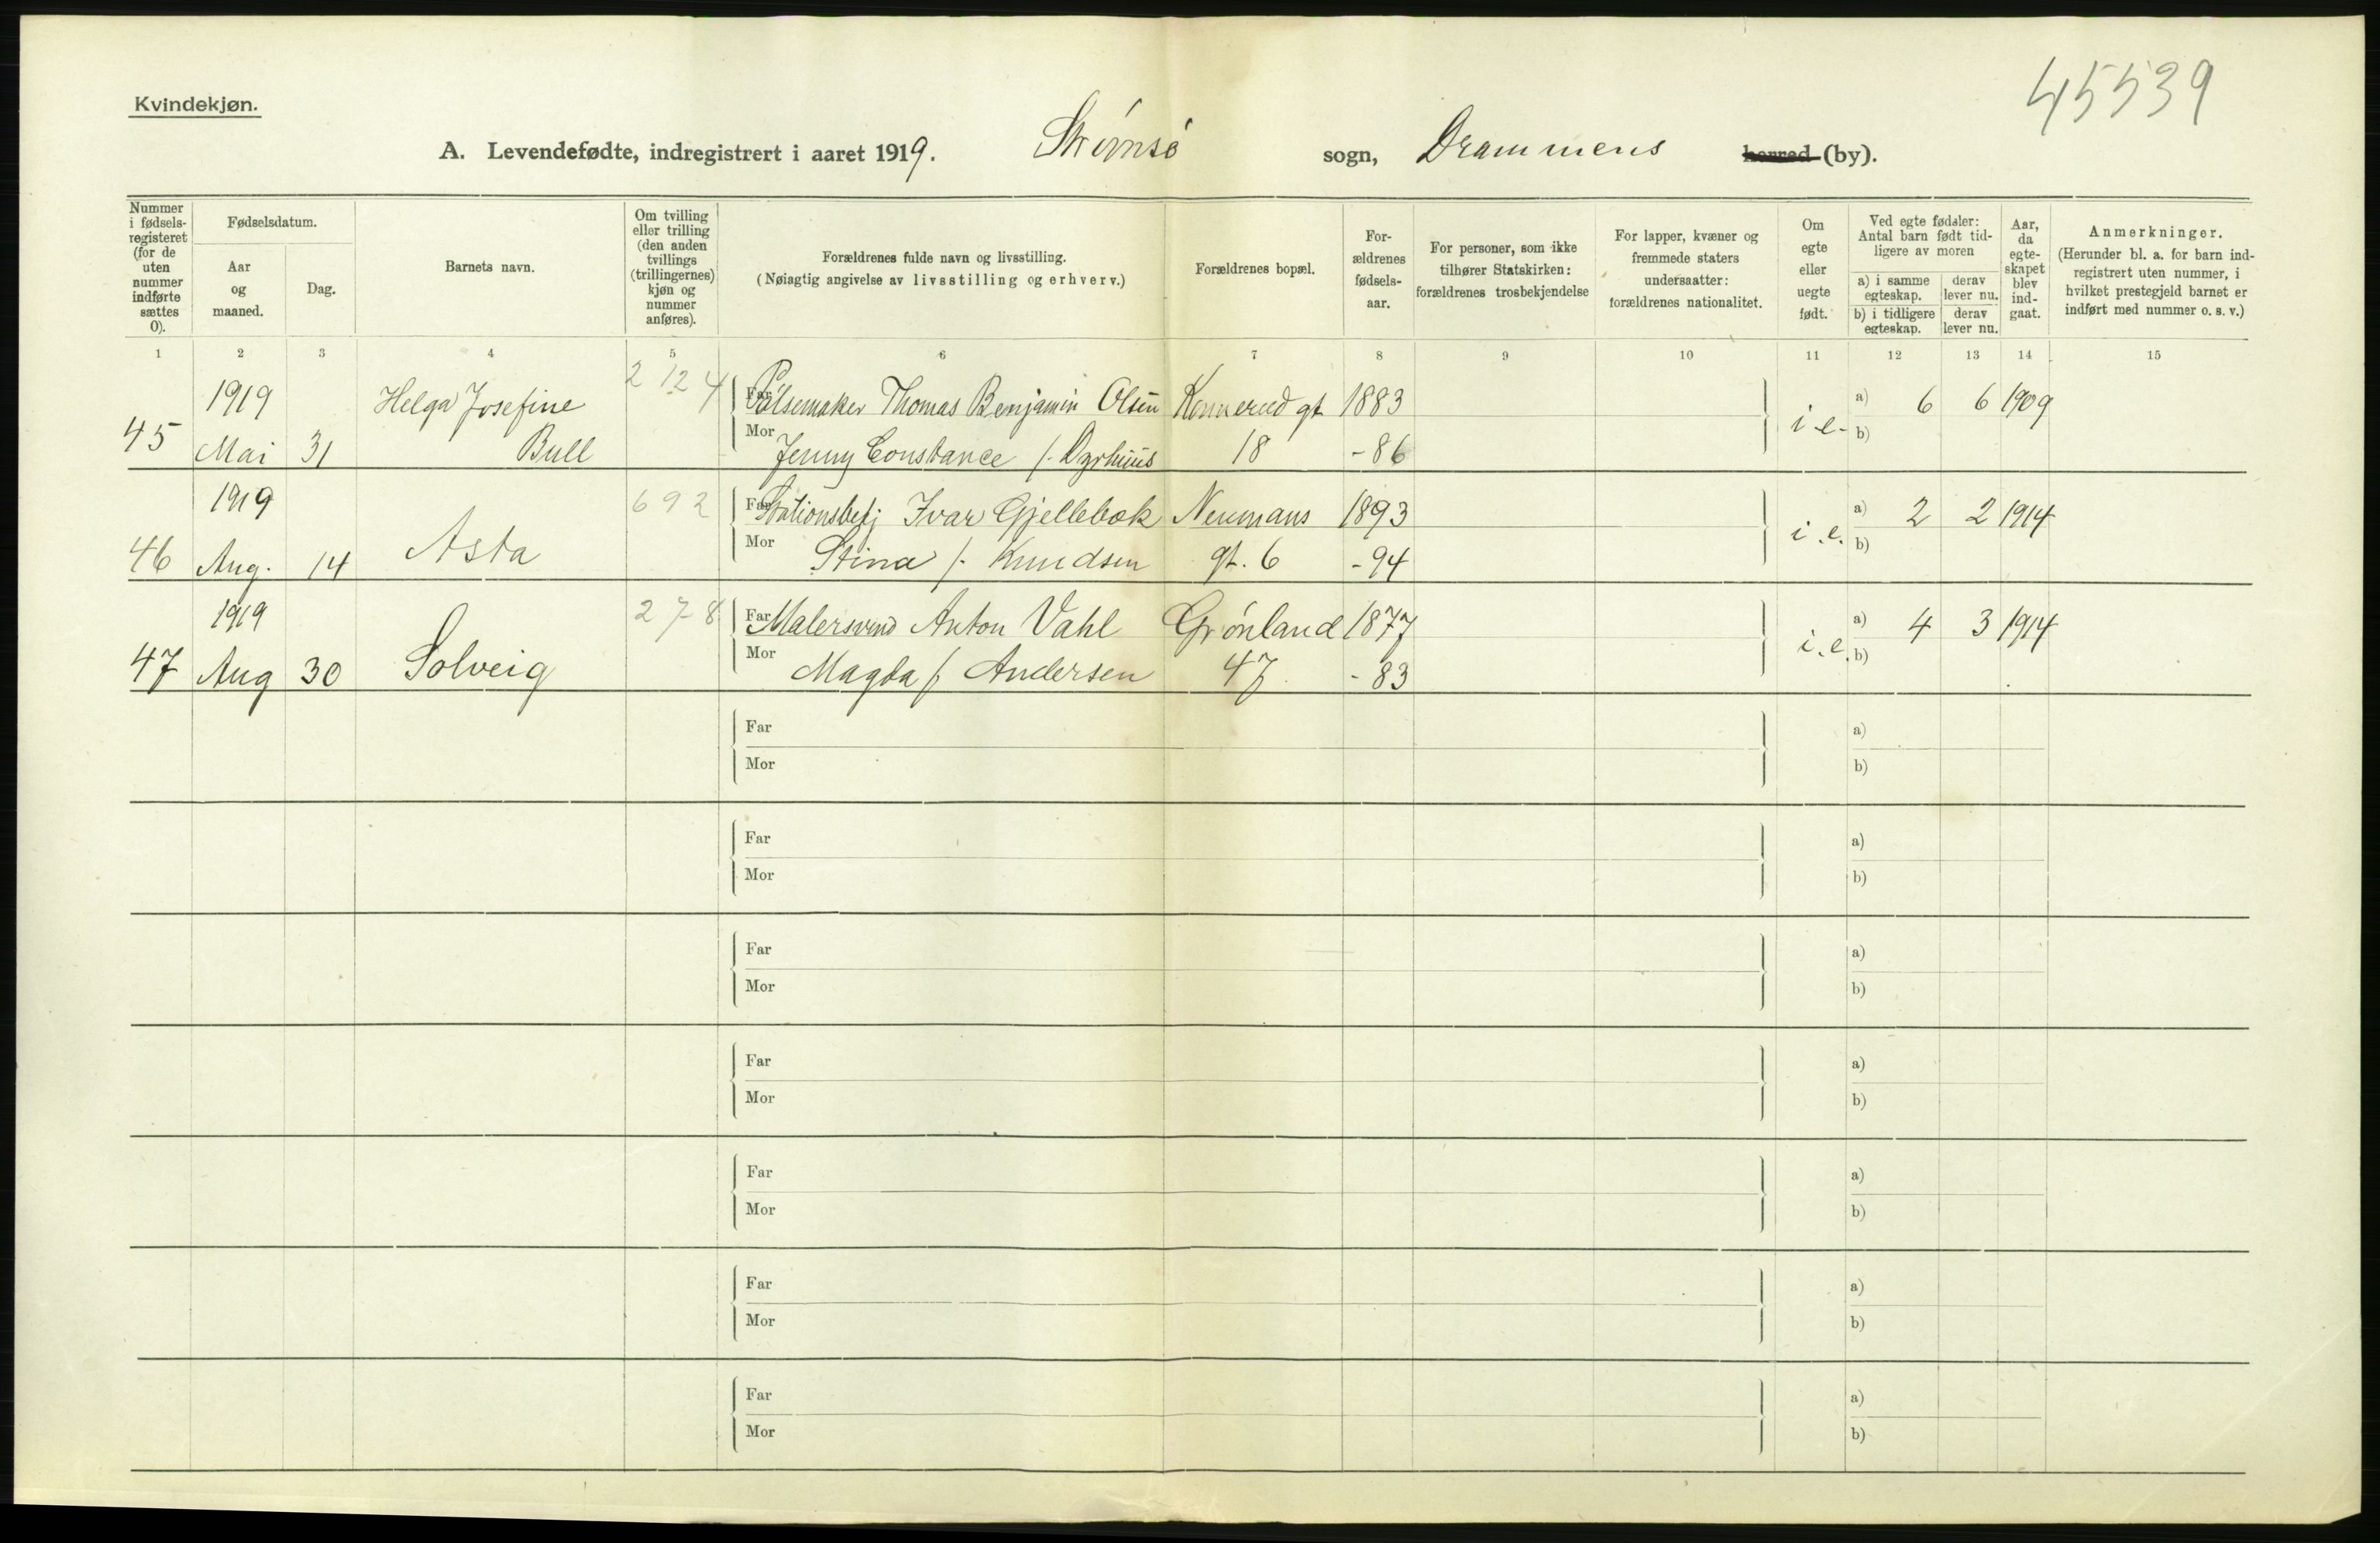 45539
Kvindekjøn.
A. Levendefødte, indregistrert i aaret 1919. Strømsø sogn, Drammens herred (by).
Nummer i fødsels-registeret (for de uten nummer indførte sættes 0).
Fødselsdatum.
Aar og maaned.
Dag.
Barnets navn.
Om tvilling eller trilling (den anden tvillings (trillingernes) kjøn og nummer anføres).
Forældrenes fulde navn og livsstilling.
(Nøiagtig angivelse av livsstilling og erhverv.)
Forældrenes bopæl.
For-ældrenes fødsels-aar.
For personer, som ikke tilhører Statskirken: forældrenes trosbekjendelse
For lapper, kvæner og fremmede staters undersaatter: forældrenes nationalitet.
Om egte eller uegte født.
Ved egte fødsler: Antal barn født tid-ligere av moren
a) i samme egteskap.
derav lever nu.
b) i tidligere egteskap.
derav lever nu.
Aar, da egte-skapet blev ind-gaat.
Anmerkninger.
(Herunder bl. a. for barn ind-registrert uten nummer, i hvilket prestegjeld barnet er indført med nummer o. s. v.)
1 2 3 4 5 6 7 8 9 10 11 12 13 14 15
1919 Helga Josefine 2 12 4 Far Pølsemaker Thomas Benjamin Olsen Konnerud gt 1883 i e. a) 6 6 1909
45 Mai 31 Bull Mor Jenny Constance f. Dyrhuus 18 - 86 b)
1919 692 Far Stationsbetj Ivar Gjellebæk Neumans 1893 i.e. a) 2 2 1914
46 Aug. 14 Asta Mor Stina f. Knudsen gt. 6 - 94 b)
1919 278 Far Malersvend Anton Vahl Grønland 1877 i.e. a) 4 3 1914
47 Aug 30 Solveig Mor Magda f. Andersen 47 - 83 b)
Far a)
Mor b)
Far a)
Mor b)
Far a)
Mor b)
Far a)
Mor b)
Far a)
Mor b)
Far a)
Mor b)
Far a)
Mor b)